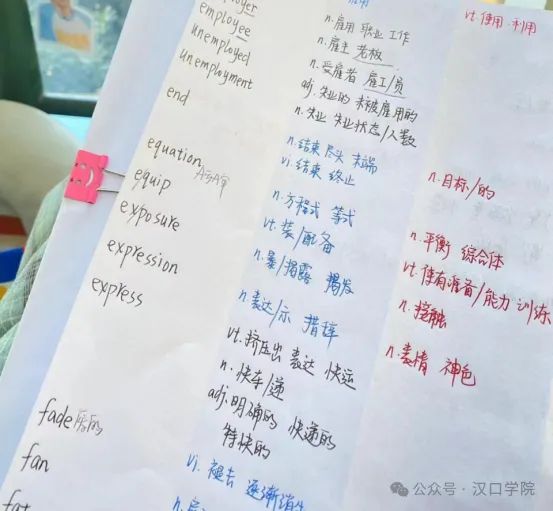 vt.使用.利用
n.雇用 职业 工作
employee n.雇主 老板
unemployed n.受雇者 雇工/员
unemployment adj.失业的 未被雇用的
n.失业 失业状态/人数
end n.结束 尽头 末端
vi.结束 终止 n.目标/的
equation n.方程式 等式 n.平衡 综合体
equip vt.装/配备 vt.使有准备/能力 训练
exposure n.暴/揭露 揭发 n.接触
expression n.表达/示 措辞 n.表情 神色
express vt.挤压出 表达 快运
n.快车/递
adj.明确的 快递的
特快的
fade vi.褪去 逐渐消失
fan
fat
公众号·汉口学院